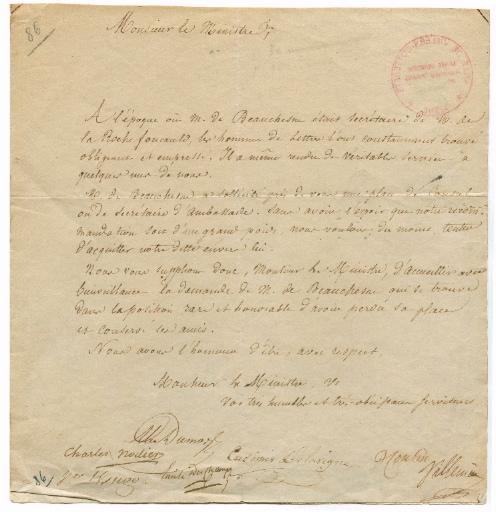 86
Monsieur le Ministre,
A l'époque où M. de Beauchesne étais Secrétaire de M. de
la Roche foucauld, les hommes de lettre l'ont constamment trouvé
obligeant et empressé. Il a même rendu de véritable service à
quelques uns de nous.
M. de Beauchesne sollicite près de vous une place de Consul
ou de Secrétaire d'Ambassade. Sans avoir l'espoir que notre recom-
mandation soit d'un grand poids, nous voulons, du moins, tenter
d'acquitter notre dette envers lui.
Nous vous supplions donc, Monsieur le Ministre, d'accueillir avec
bienveillance la demande de M. de Beauchesne qui se trouve
dans la position rare et honorable d'avoir perdu sa place
et conservé ses amis.
Nous avons l'honneur d'être, avec respect,
Monsieur le Ministre, Vo
Vos très humbles et très obéissans serviteurs
Alex Dumas
Charles Nodier Casimir Delavigne
Vor Hugo Emile Deschamps
86